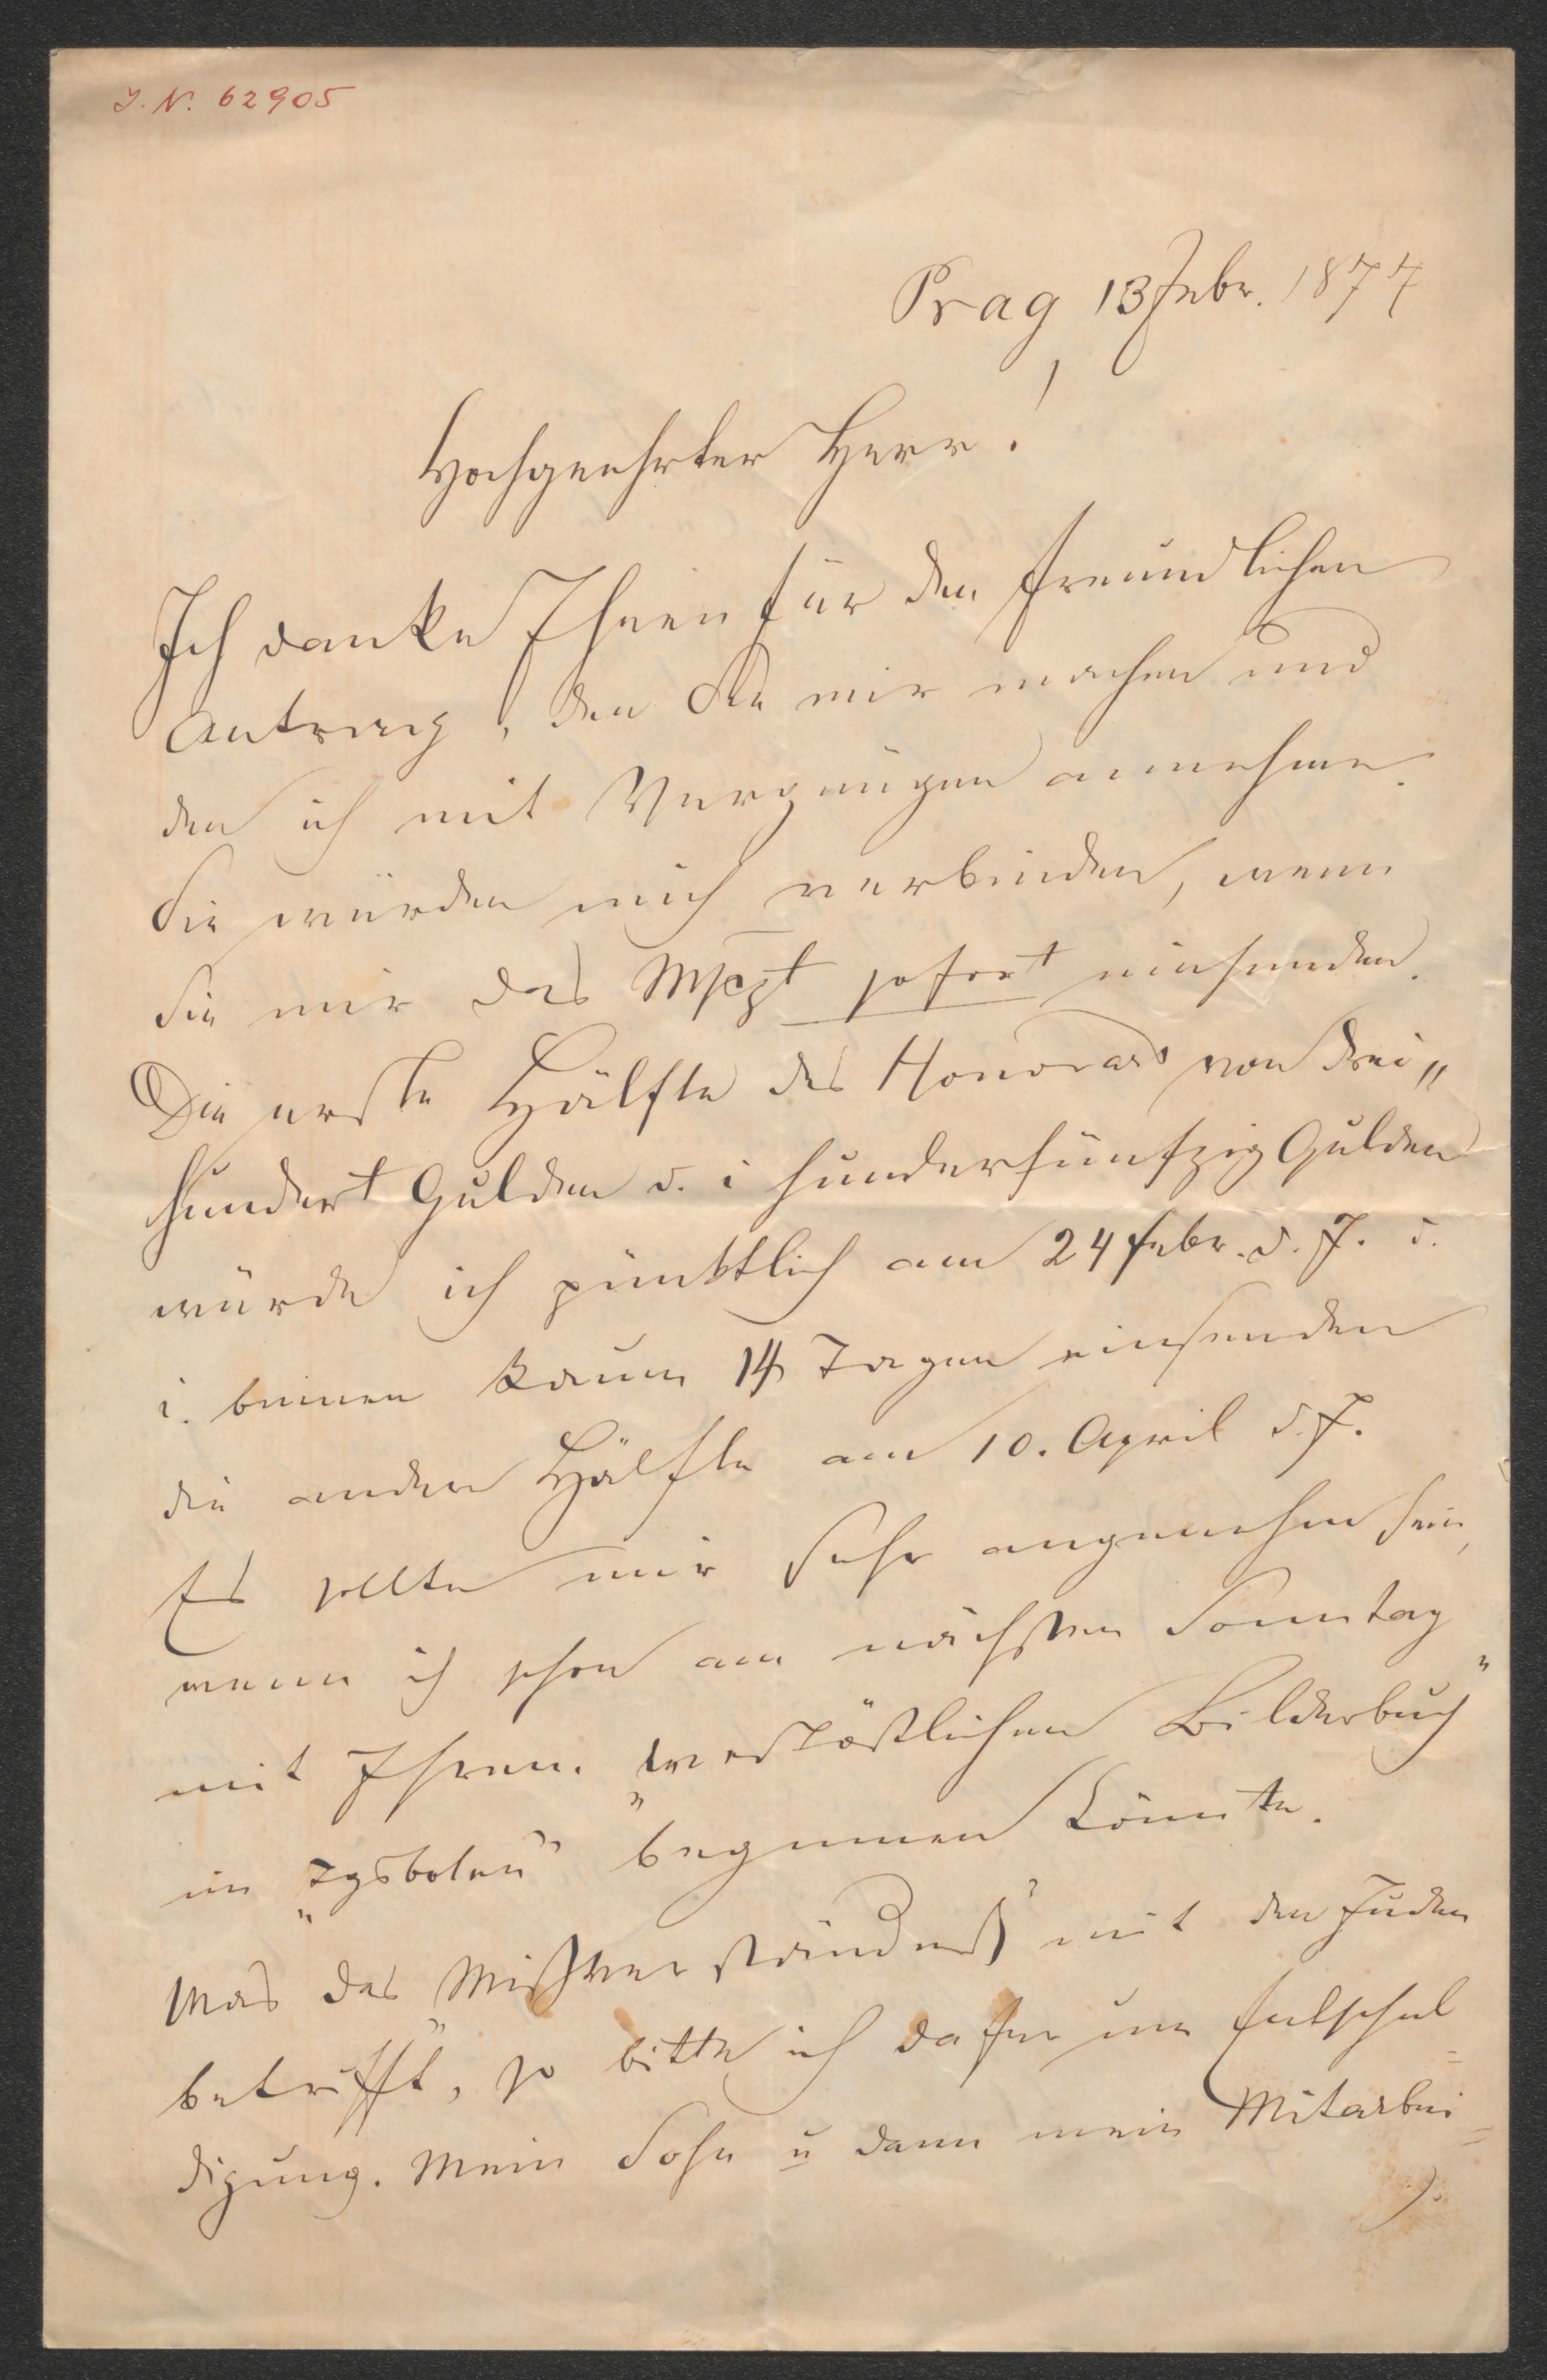 I. N. 62905
Prag 13 Febr. 1877
Hochgeehrter Herr!
Ich danke Ihnen für den freundlichen
Antrag, den Sie mir machen und
den ich mit Vergnügen annehme.
Sie würden mich verbinden, wenn
Sie mir das Mscpt sofort einsenden.
Die erste Hälfte des Honorars von drei„
hundert Gulden d. i hunderfünfzig Gulden
würde ich pünktlich am 24 Febr. d. J. d.
i. binnen kaum 14 Tagen einsenden
die andere Hälfte am 10. April d. J.
Es sollte mir sehr angenehm sein,
wenn ich schon am nächsten Sonntag
mit Ihrem „westöstlichen Bilderbuch“
im „Tgsboten“ beginnen könnte.
Was das „Mißverständniß mit den Juden
betrifft“, so bitte ich dafür um Entschul=
digung. Mein Sohn u dann mein Mitarbei=